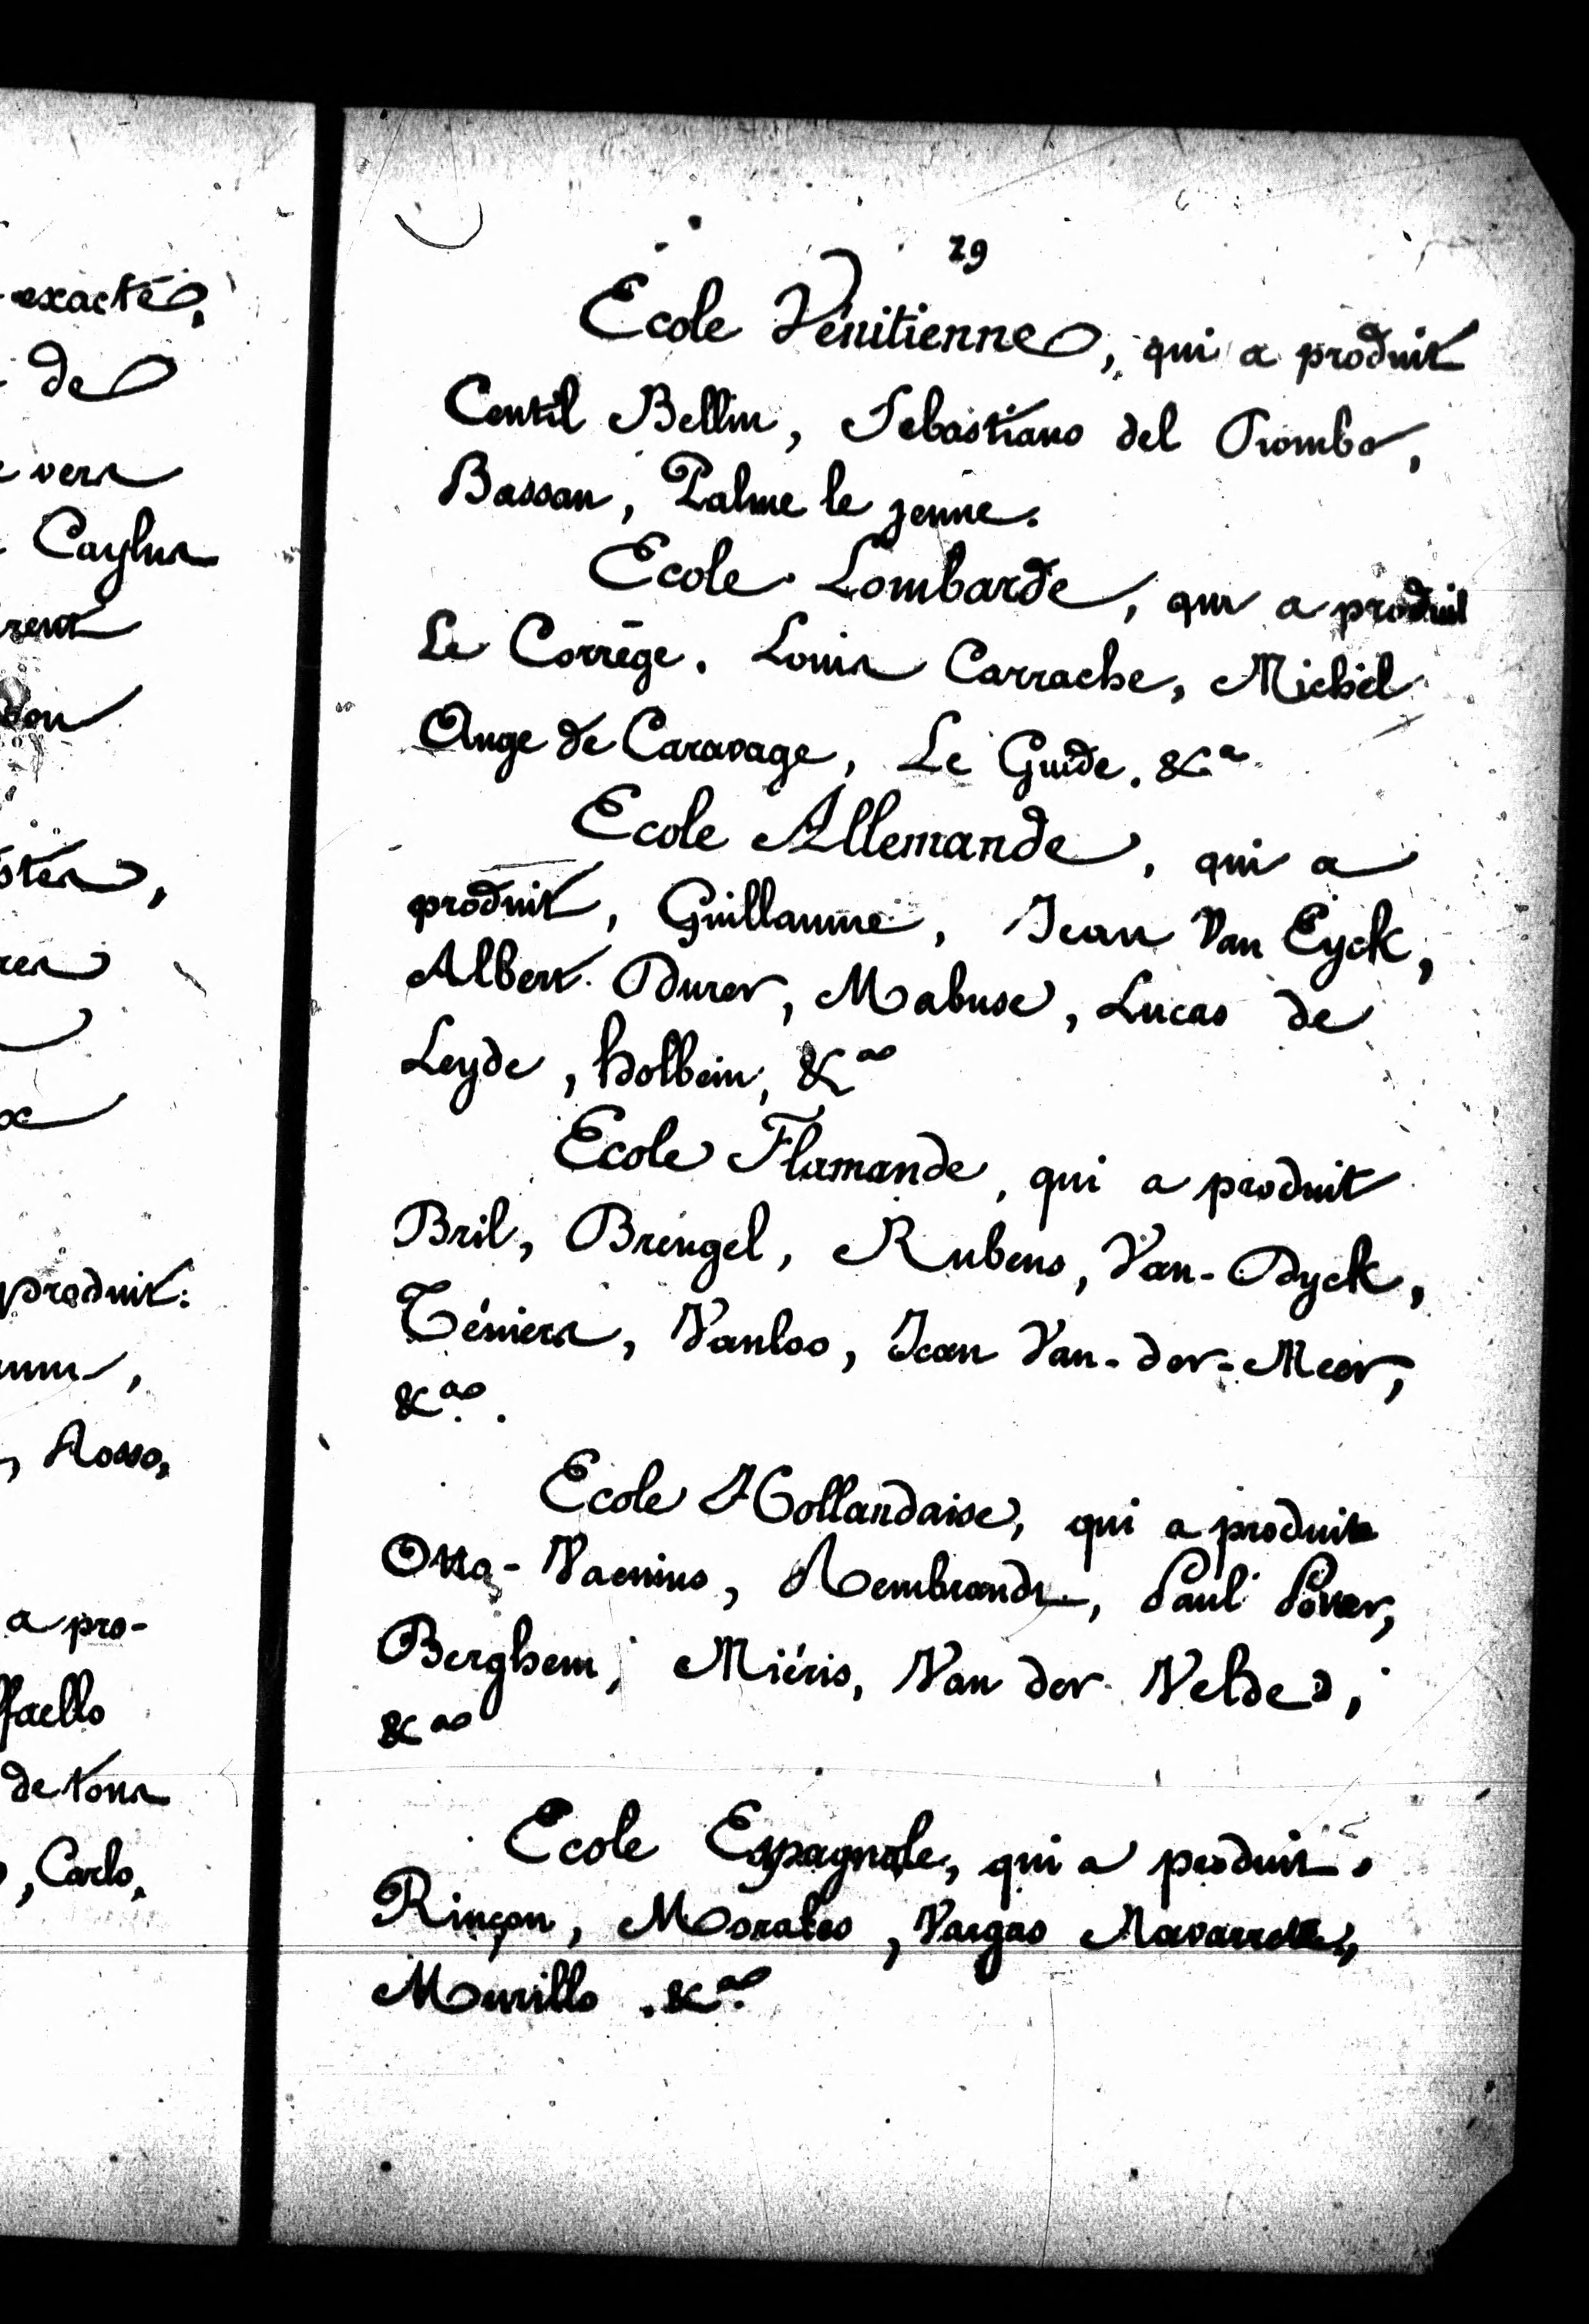 exacte,
de
vers
Caylus
produit:
, Rosso,
a pro-
ffaello
de tous
, Carlo,
29
Ecole Vénitienne, qui a produit
Centil Bellin, Sebastiano del Piombo,
Bassan, Palme le jeune.
Ecole Lombarde, qui a produit
Le Corrège. Louis Carrache, Michel
Ange de Caravage, Le Guide. &a
Ecole Allemande, qui a
produit, Guillaume, Jean Van Eyck,
Albert Durer, Mabuse, Lucas de
Leyde, holbein, &a
Ecole Flamande, qui a produit
Bril, Breugel, Rubens, Van-Dyck,
Téniers, Vanloo, Jean Van-der-Meer,
&a.
Ecole Hollandaise, qui a produit
Otta-Vaenius, Rembrandt, Paul Potter,
Berghem, Miéris, Van der Velde,
&a
Ecole Espagnole, qui a produit.
Rinçon, Morales, Vargas Navarrette,
Murillo. &a